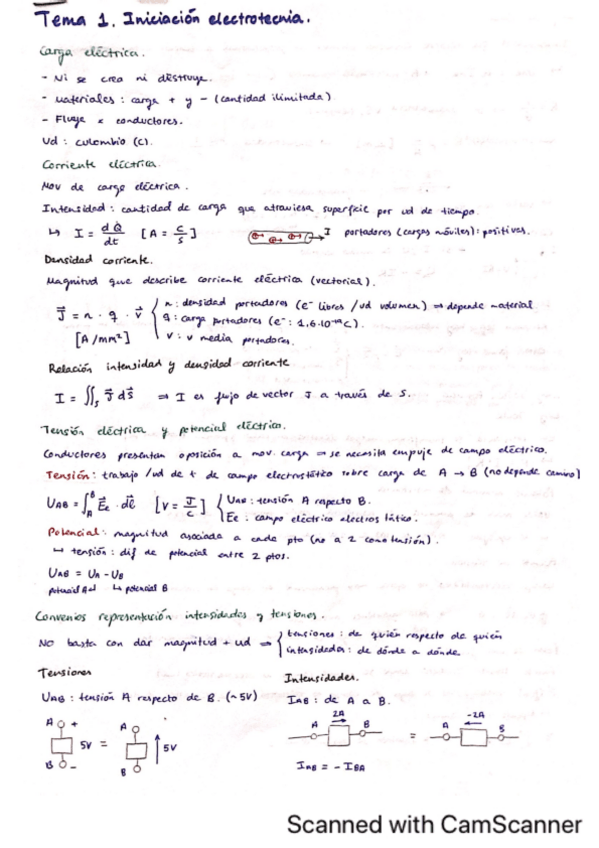 Tema 1. Iniciación electrotecnia.
Carga eléctrica.
- Ni se crea ni destruye.
- Materiales: carga + y - (cantidad ilimitada)
- Fluye x conductores.
Ud: culombio (C).
Corriente eléctrica.
Mov de carga eléctrica.
Intensidad: cantidad de carga que atraviesa superficie por ud de tiempo.
↳ I = dQ/dt [A = C/S] I portadores (cargas móviles): positivas.
Densidad corriente.
Magnitud que describe corriente eléctrica (vectorial).
n: densidad portadores (e⁻ libres /ud volumen) ⇒ depende material
J⃗ = n · q · v⃗ q: carga portadores (e⁻: 1,6·10⁻¹⁹ C).
[A/mm²] v: v media portadores.
Relación intensidad y densidad corriente
I = ∬s J⃗ ds⃗ ⇒ I es flujo de vector J a través de S.
Tensión eléctrica y potencial eléctrico.
Conductores presentan oposición a mov. carga ⇒ se necesita empuje de campo eléctrico.
Tensión: trabajo /ud de + de campo electrostático sobre carga de A → B (no depende camino)
UAB = ∫ᴬᴮ E⃗e · dl⃗ [V = J/C] UAB: tensión A respecto B.
Ee: campo eléctrico electrostático.
Potencial: magnitud asociada a cada pto (no a 2 como tensión).
↳ tensión: dif de potencial entre 2 ptos.
UAB = UA - UB
potencial A ↲ ↳ potencial B
Convenios representación intensidades y tensiones.
NO basta con dar magnitud + ud ⇒ tensiones: de quién respecto de quién
intensidades: de dónde a dónde.
Tensiones Intensidades.
UAB: tensión A respecto de B. (~5V) IAB: de A a B.
A + A 2A -2A
5V = 5V A B = A B
B - B
IAB = - IBA
Scanned with CamScanner